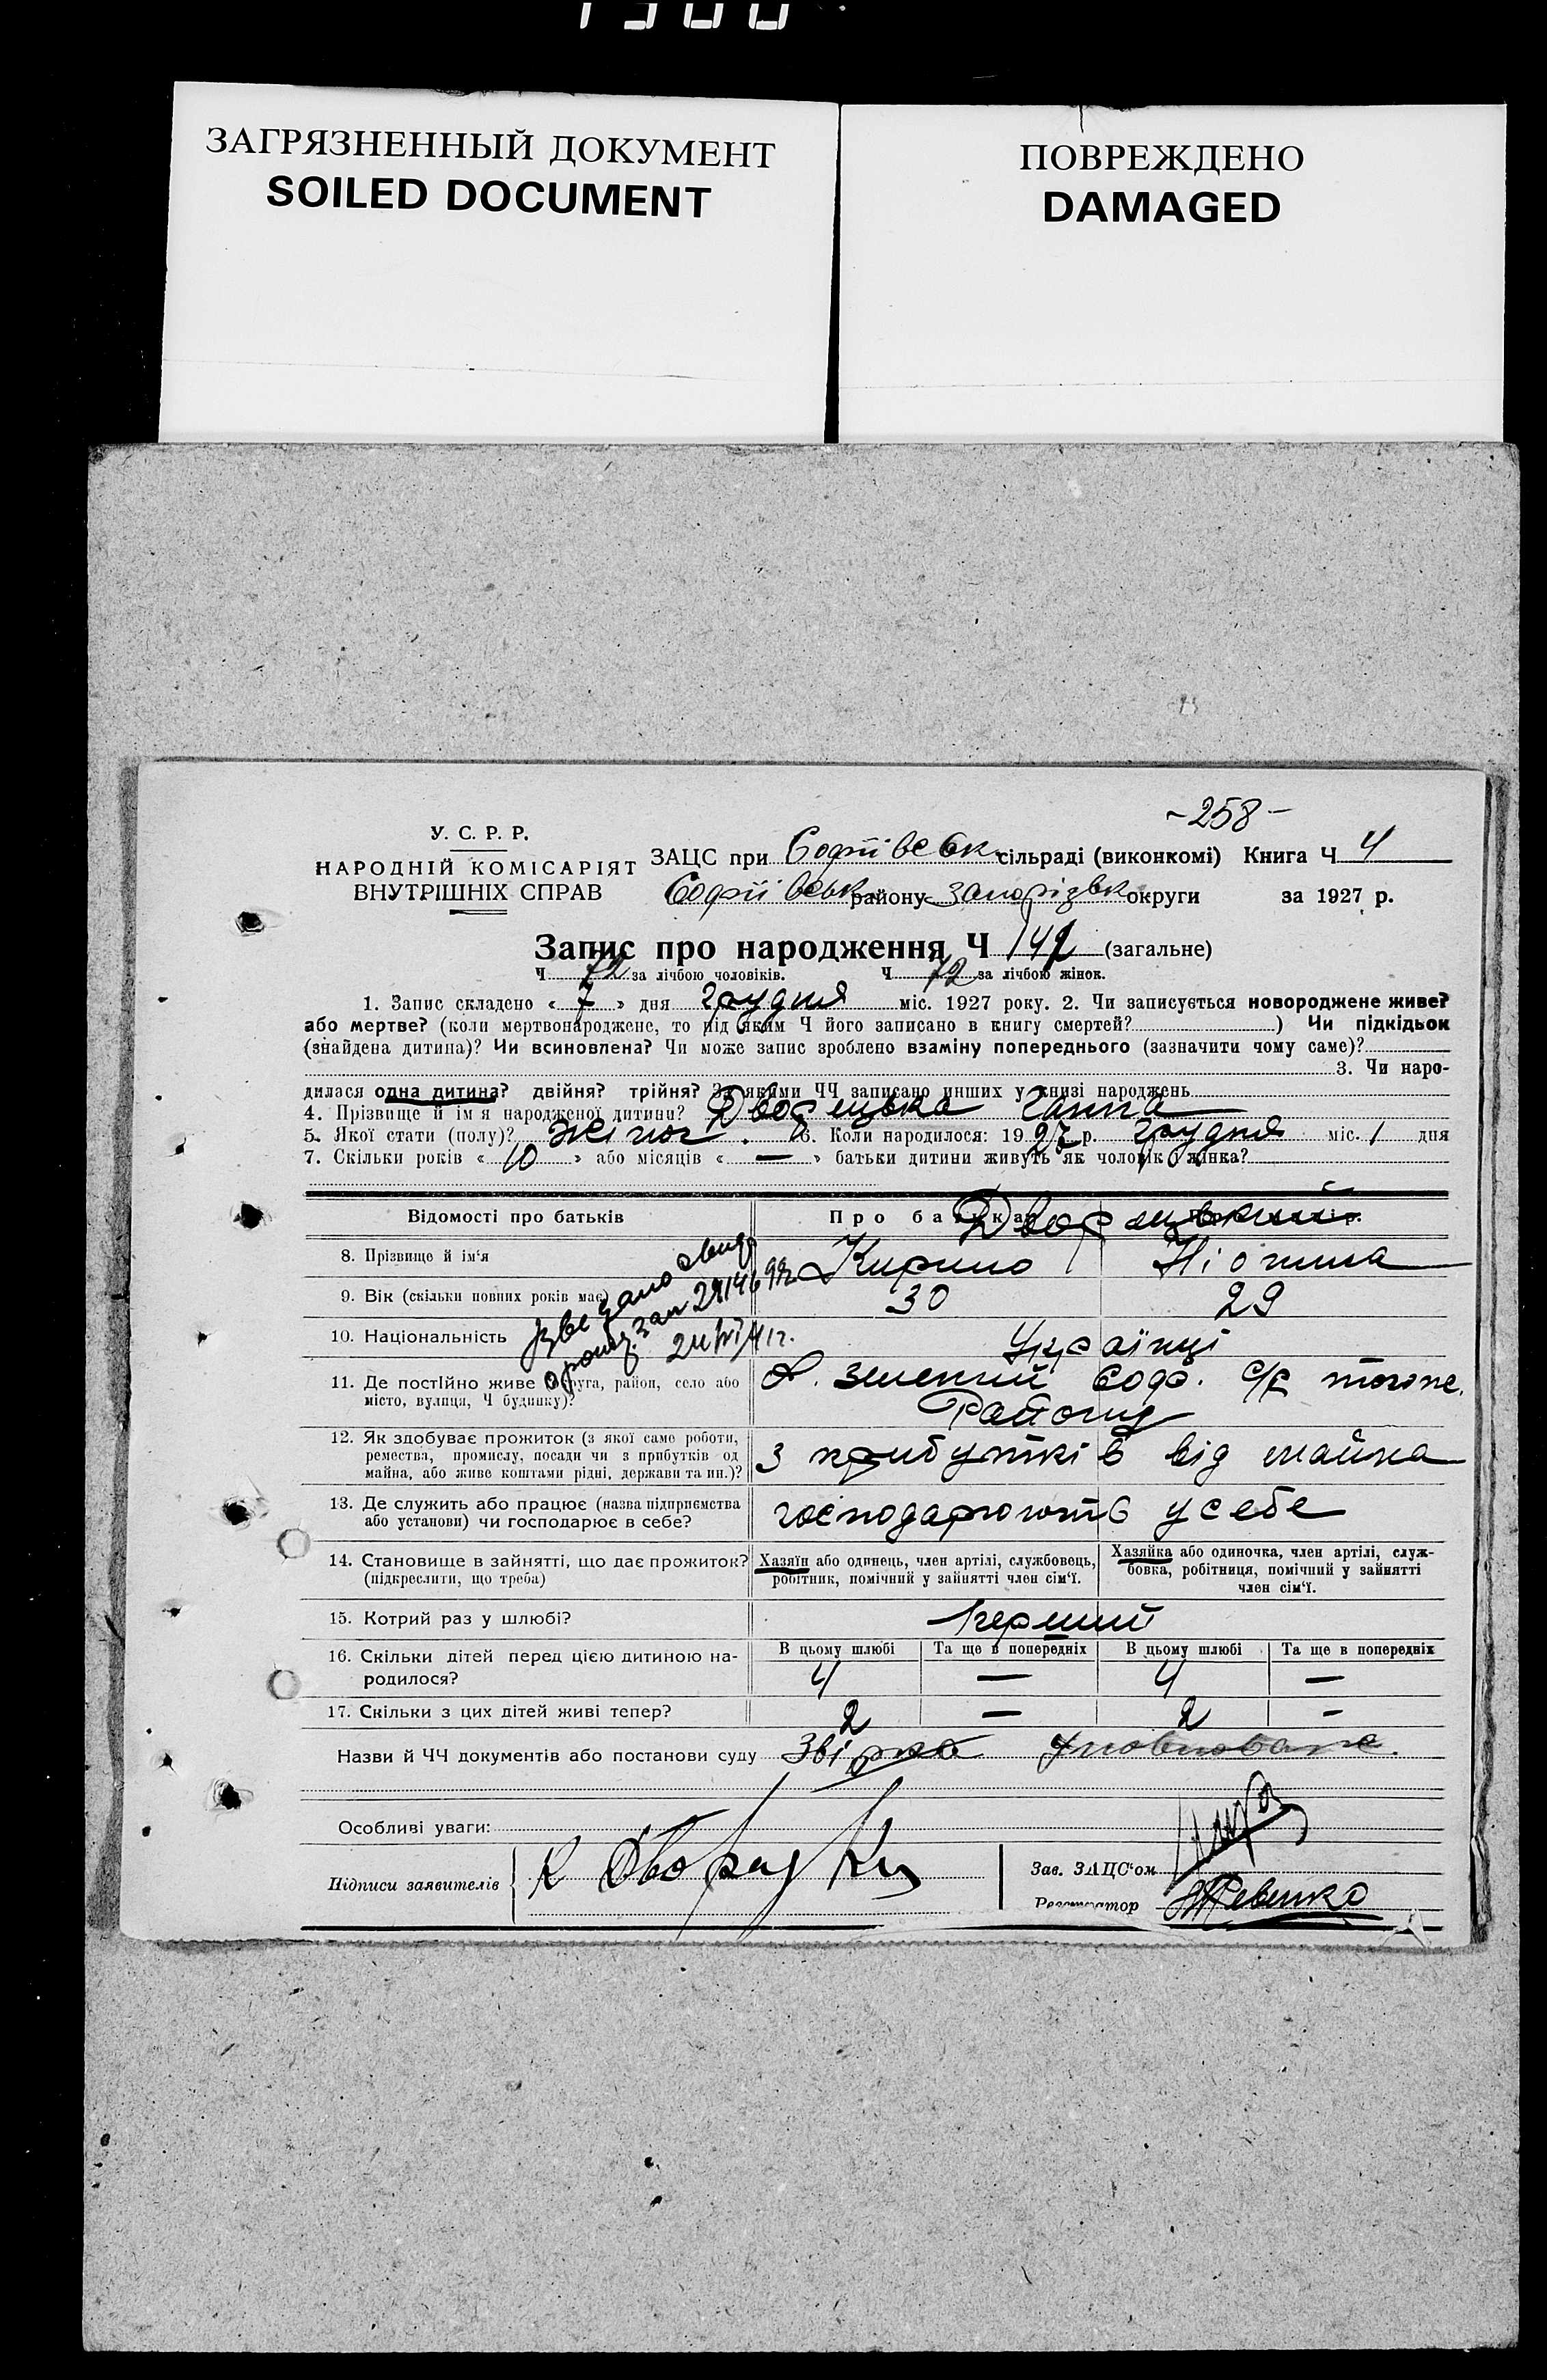 ЗАГРЯЗНЕННЫЙ ДОКУМЕНТ
SOILED DOCUMENT
ПОВРЕЖДЕНО
DAMAGED
-258-
У. С. Р. Р.
НАРОДНІЙ КОМІСАРІЯТ
ВНУТРІШНІХ СПРАВ
ЗАЦС при Софіївськ сільраді (виконкомі) Книга Ч 4
Софіївськ району Запорізьк округи за 1927 р.
Запис про народження Ч (загальне)
Ч 72 за лічбою чоловіків. Ч 72 за лічбою жінок.
1. Запис складено « 7 » дня грудня міс. 1927 року. 2. Чи записується новороджене живе?
або мертве? (коли мертвонароджене, то під яким Ч його записано в книгу смертей? ) Чи підкідьок
(знайдена дитина)? Чи всиновлена? Чи може запис зроблено взаміну попереднього (зазначити чому саме)?
3. Чи наро-
дилася одна дитина? двійня? трійня? За якими ЧЧ записано инших у книзі народжень
4. Прізвище й ім'я народженої дитини? Дворецька Ганна
5. Якої стати (полу)? Жіноч. 6. Коли народилося: 1927 р. грудня міс. 1 дня
7. Скільки років « 10 » або місяців « — » батьки дитини живуть як чоловік і жінка?
Відомості про батьків
Про батька
Дворецький
8. Прізвище й ім'я Кирило
9. Вік (скільки повних років має) 30 29
10. Національність Українці
11. Де постійно живе (округа, район, село або
місто, вулиця, Ч будинку)? Зелений Соф. с/р тогоже
Району
12. Як здобуває прожиток (з якої саме роботи,
ремества, промислу, посади чи з прибутків од
майна, або живе коштами рідні, держави та ин.)? З прибутків від майна
13. Де служить або працює (назва підприємства
або установи) чи господарює в себе? господарюють у себе
14. Становище в зайнятті, що дає прожиток?
(підкреслити, що треба)
Хазяїн або одинець, член артілі, службовець,
робітник, помічний у зайнятті член сім'ї.
Хазяйка або одиночка, член артілі, служ-
бовка, робітниця, помічний у зайнятті
член сім'ї.
15. Котрий раз у шлюбі? Перший
16. Скільки дітей перед цією дитиною на-
родилося?
В цьому шлюбі Та ще в попередніх В цьому шлюбі Та ще в попередніх
4 — 4 —
17. Скільки з цих дітей живі тепер? 2 — 2 —
Назви й ЧЧ документів або постанови суду Звірка
Особливі уваги:
Підписи заявителів К Дворец
Зав. ЗАЦС'ом
Реєстратор